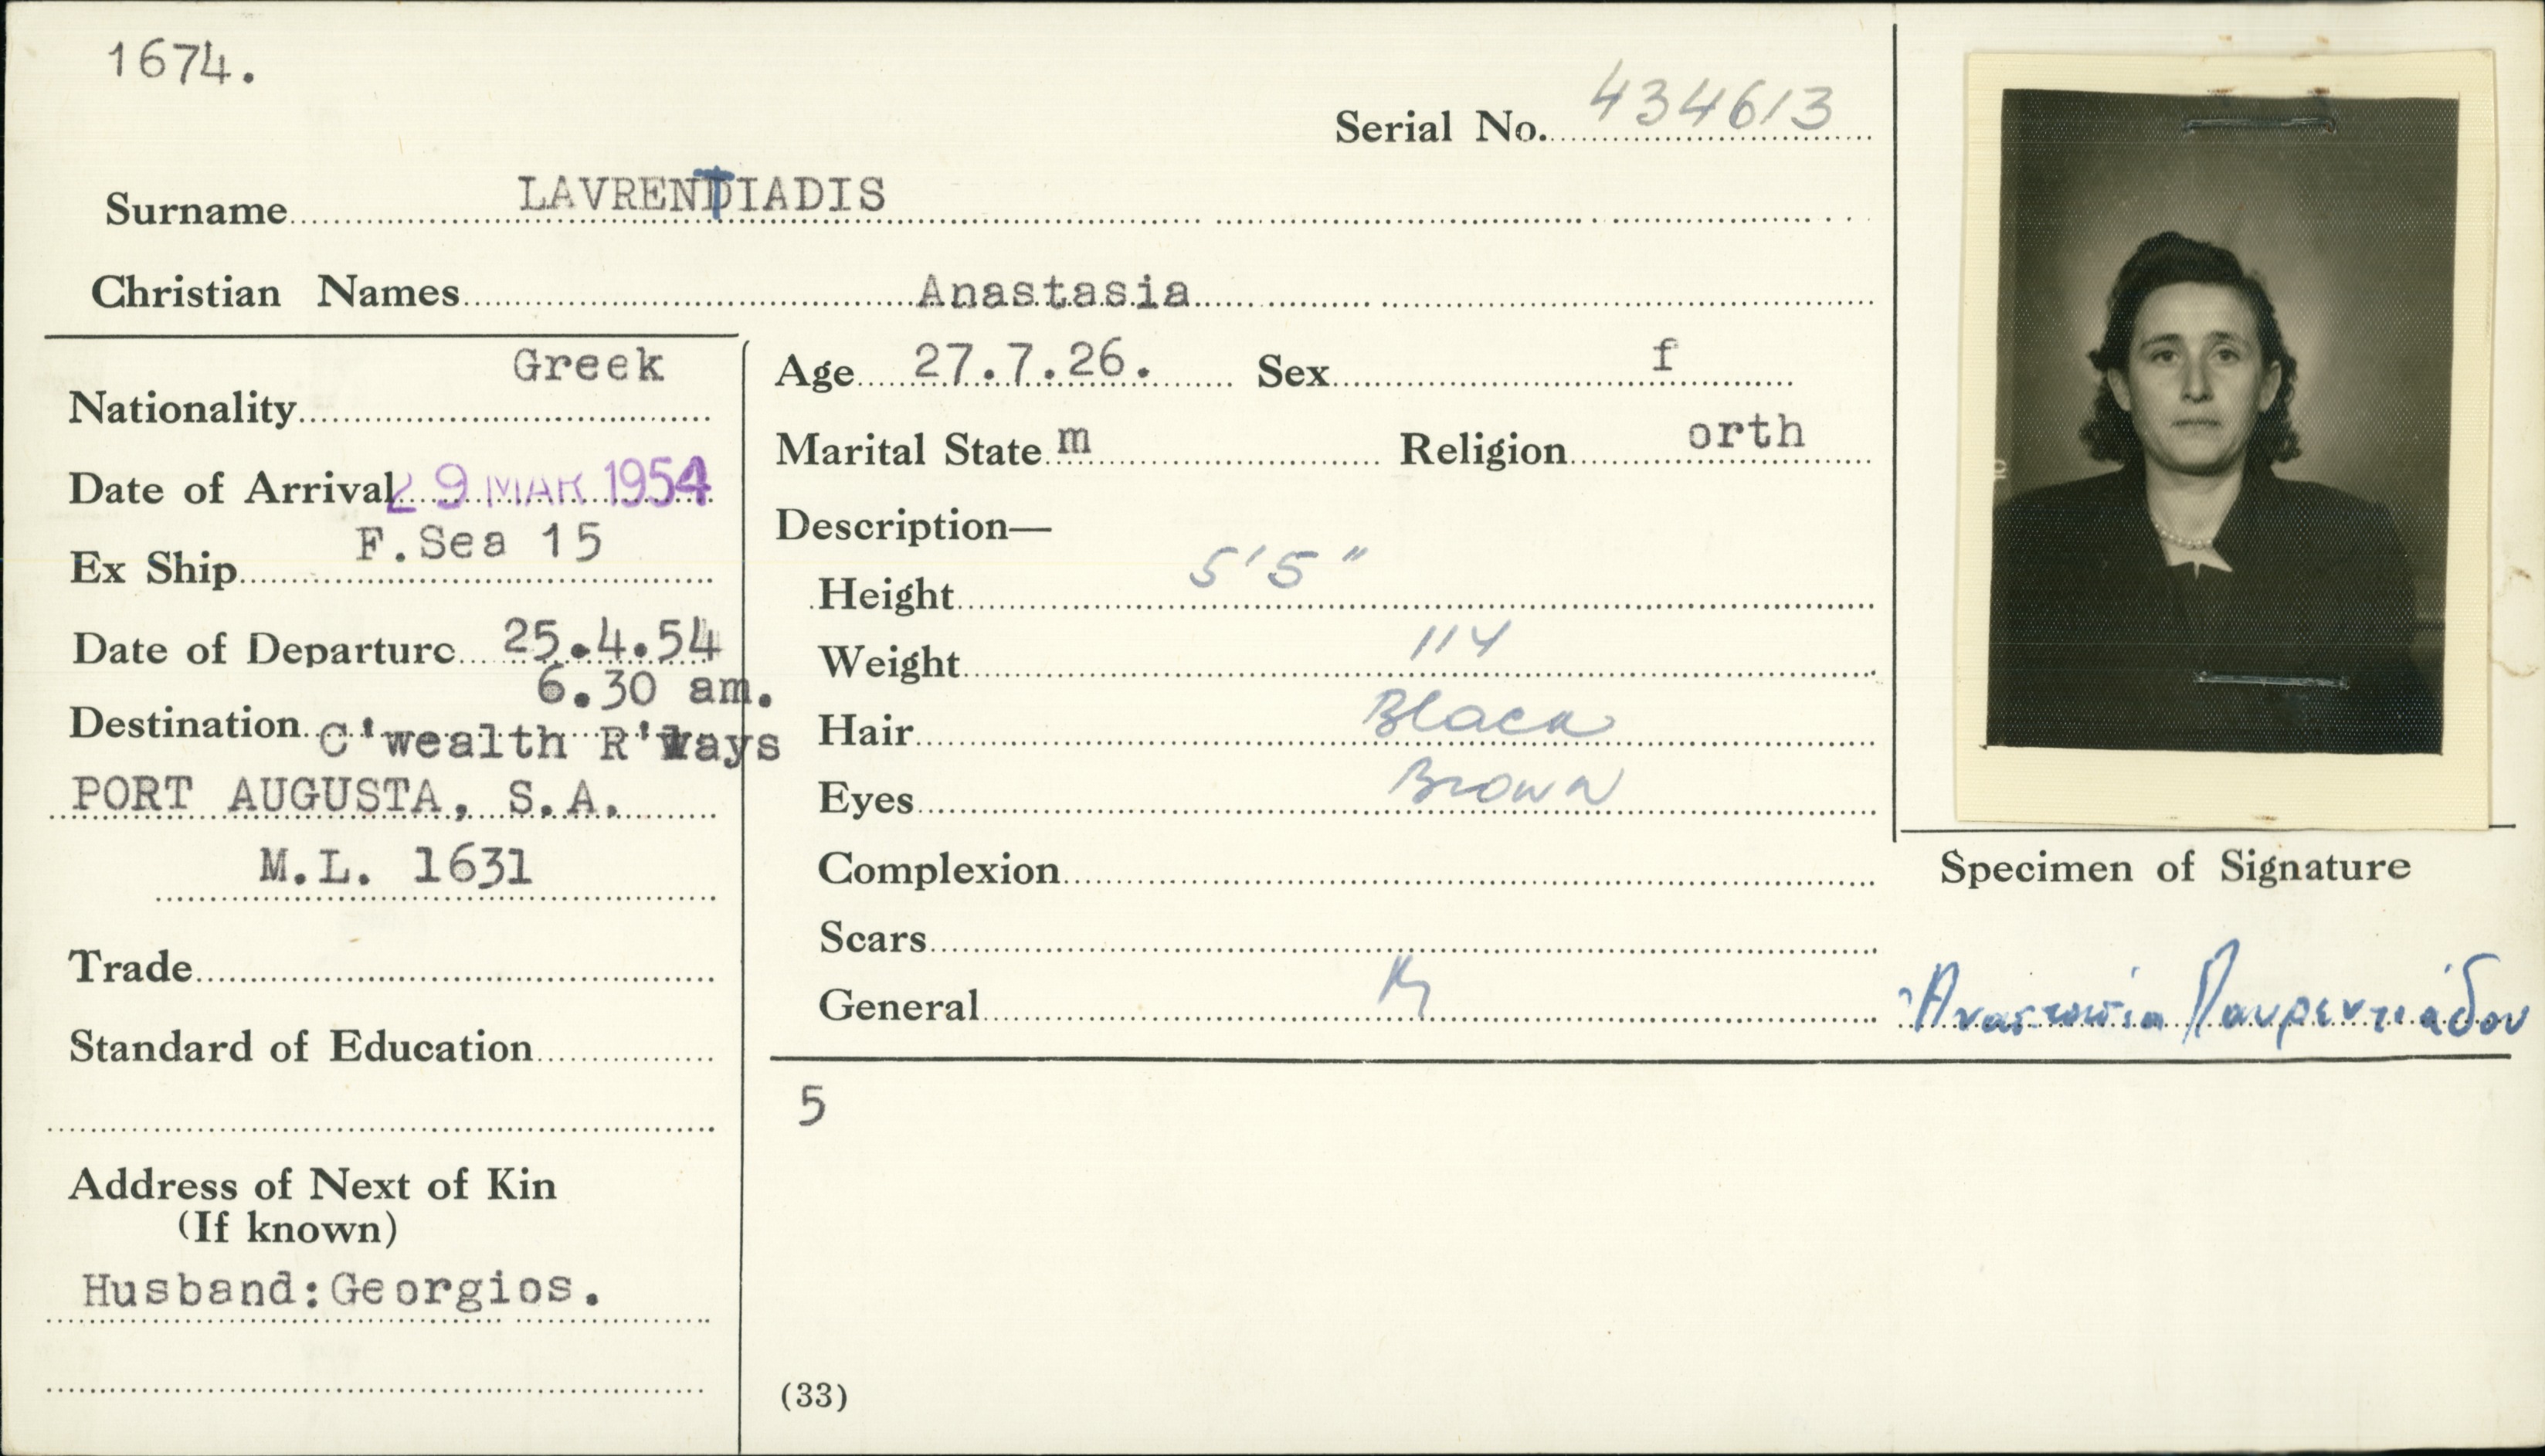 1674.
Serial No. 434613
Surname LAVRENTIADIS
Christian Names Anastasia
Nationality Greek
Date of Arrival 29 MAR 1954
Ex Ship F.Sea 15
Date of Departure 25.4.54
6.30 am.
Destination C'wealth R'ways
PORT AUGUSTA, S.A.
M.L. 1631
Trade
Standard of Education
Address of Next of Kin
(If known)
Husband:Georgios.
Age 27.7.26. Sex f
Marital State m Religion orth
Description—
Height 5'5"
Weight 114
Hair Black
Eyes Brown
Complexion
Scars
General
5
(33)
Specimen of Signature
Ἀναστασία Λαυρεντιάδου